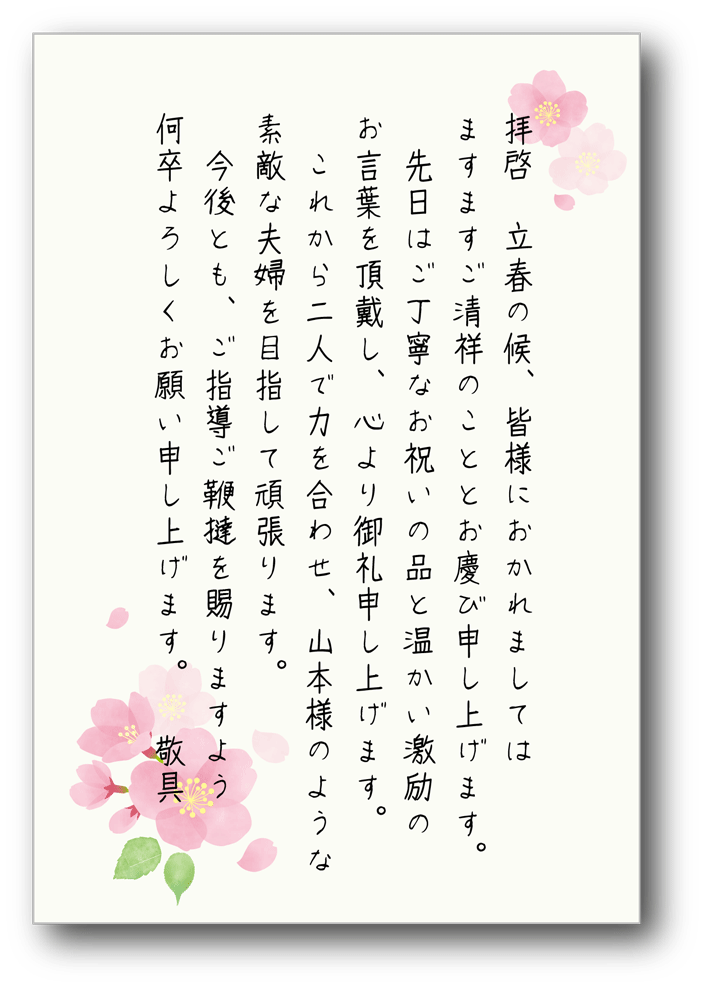 拝啓　立春の候、皆様におかれましては
ますますご清祥のこととお慶び申し上げます。
先日はご丁寧なお祝いの品と温かい激励の
お言葉を頂戴し、心より御礼申し上げます。
これから二人で力を合わせ、山本様のような
素敵な夫婦を目指して頑張ります。
今後とも、ご指導ご鞭撻を賜りますよう
何卒よろしくお願い申し上げます。　敬具